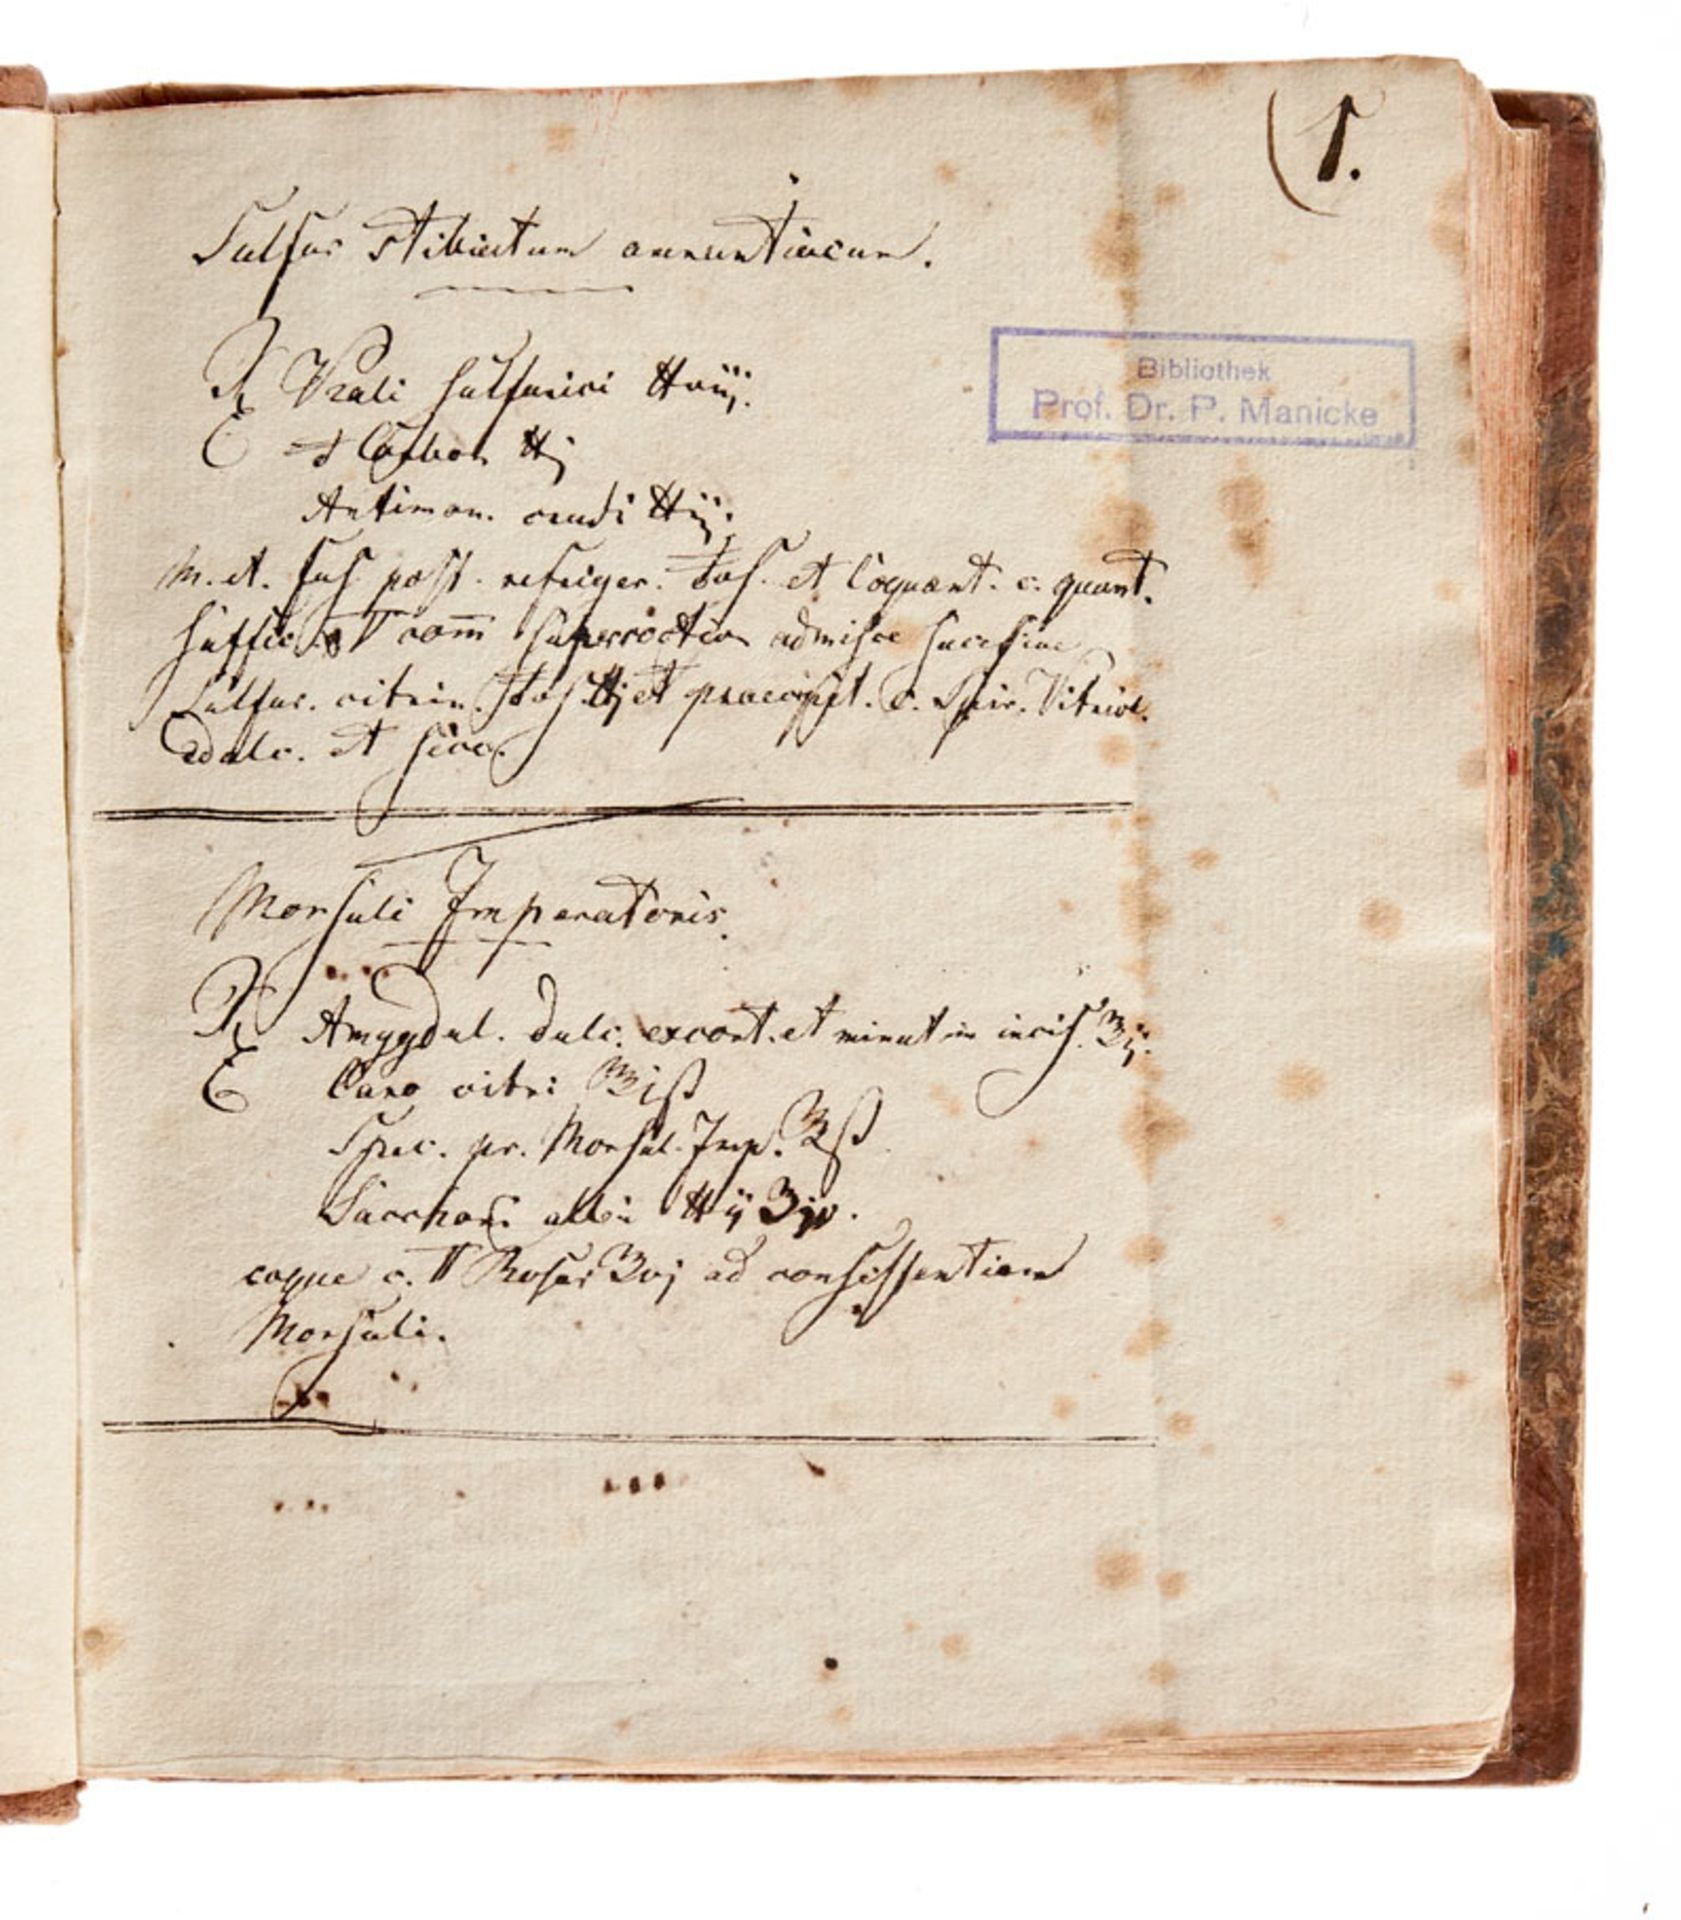 (1.
Sulfur stibiatum aurantiacum.
Bibliothek
Prof. Dr. P. Manicke
℞ Kali sulfurici ℔viij.
Carbon ℔j
Antimon. crudi ℔ij.
M. et. fus. post. refriger. et Coquant. c. quant.
suffic. comm admisce
Sulfur. citrin. ℔j et praecipit. c. Spir. Vitriol.
Edulc. et sicc.
Morsuli Imperatoris.
℞ Amygdal. dulc. excort. et minutim incis. ℥ij.
Confect. citri ℥jß
Spec. pr. Morsul. Imp. ß
Sacchari albi ℔ij ℥iv.
coque c. ▽ Rosar ℥vj ad consistentiam
Morsuli.